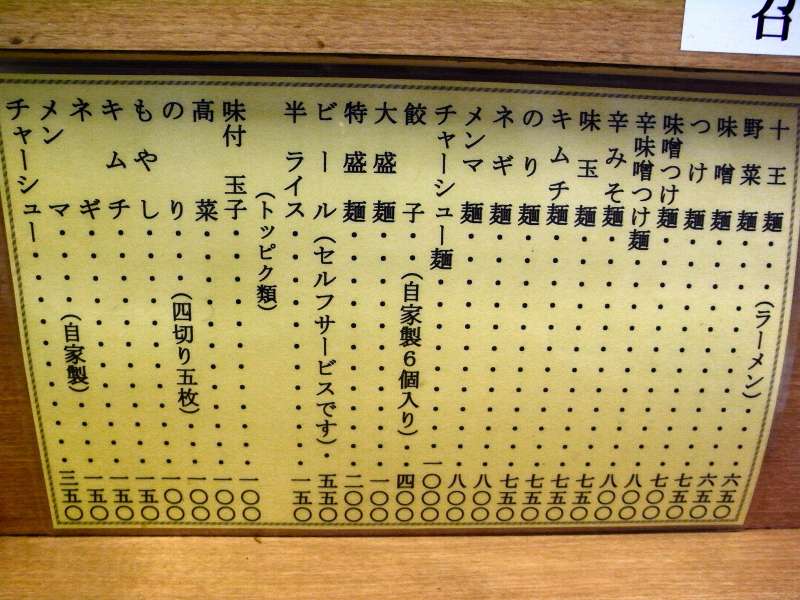 召
十王麺・・・(ラーメン)・・六五〇
野菜麺・・・・・・・・・・六五〇
味噌麺・・・・・・・・・・七五〇
つけ麺・・・・・・・・・・七〇〇
味噌つけ麺・・・・・・・・・八〇〇
辛味噌つけ麺・・・・・・・・八〇〇
辛みそ麺・・・・・・・・・・七五〇
味玉麺・・・・・・・・・・七五〇
キムチ麺・・・・・・・・・・七五〇
のり麺・・・・・・・・・・七五〇
ネギ麺・・・・・・・・・・八〇〇
メンマ麺・・・・・・・・・・八〇〇
チャーシュー麺・・・・・・・・一〇〇〇
餃子・・(自家製6個入り)・・四〇〇
大盛麺・・・・・・・・・・一〇〇
特盛麺・・・・・・・・・・二〇〇
ビール(セルフサービスです)・・五五〇
半ライス・・・・・・・・・・一五〇
(トッピク類)
味付玉子・・・・・・・・・・一〇〇
高菜・・・・・・・・・・一〇〇
のり・・・(四切り五枚)・・一〇〇
もやし・・・・・・・・・・一〇〇
キムチ・・・・・・・・・・一五〇
ネギ・・・・(自家製)・・・一五〇
メンマ・・・・・・・・・・一五〇
チャーシュー・・・・・・・・・三五〇